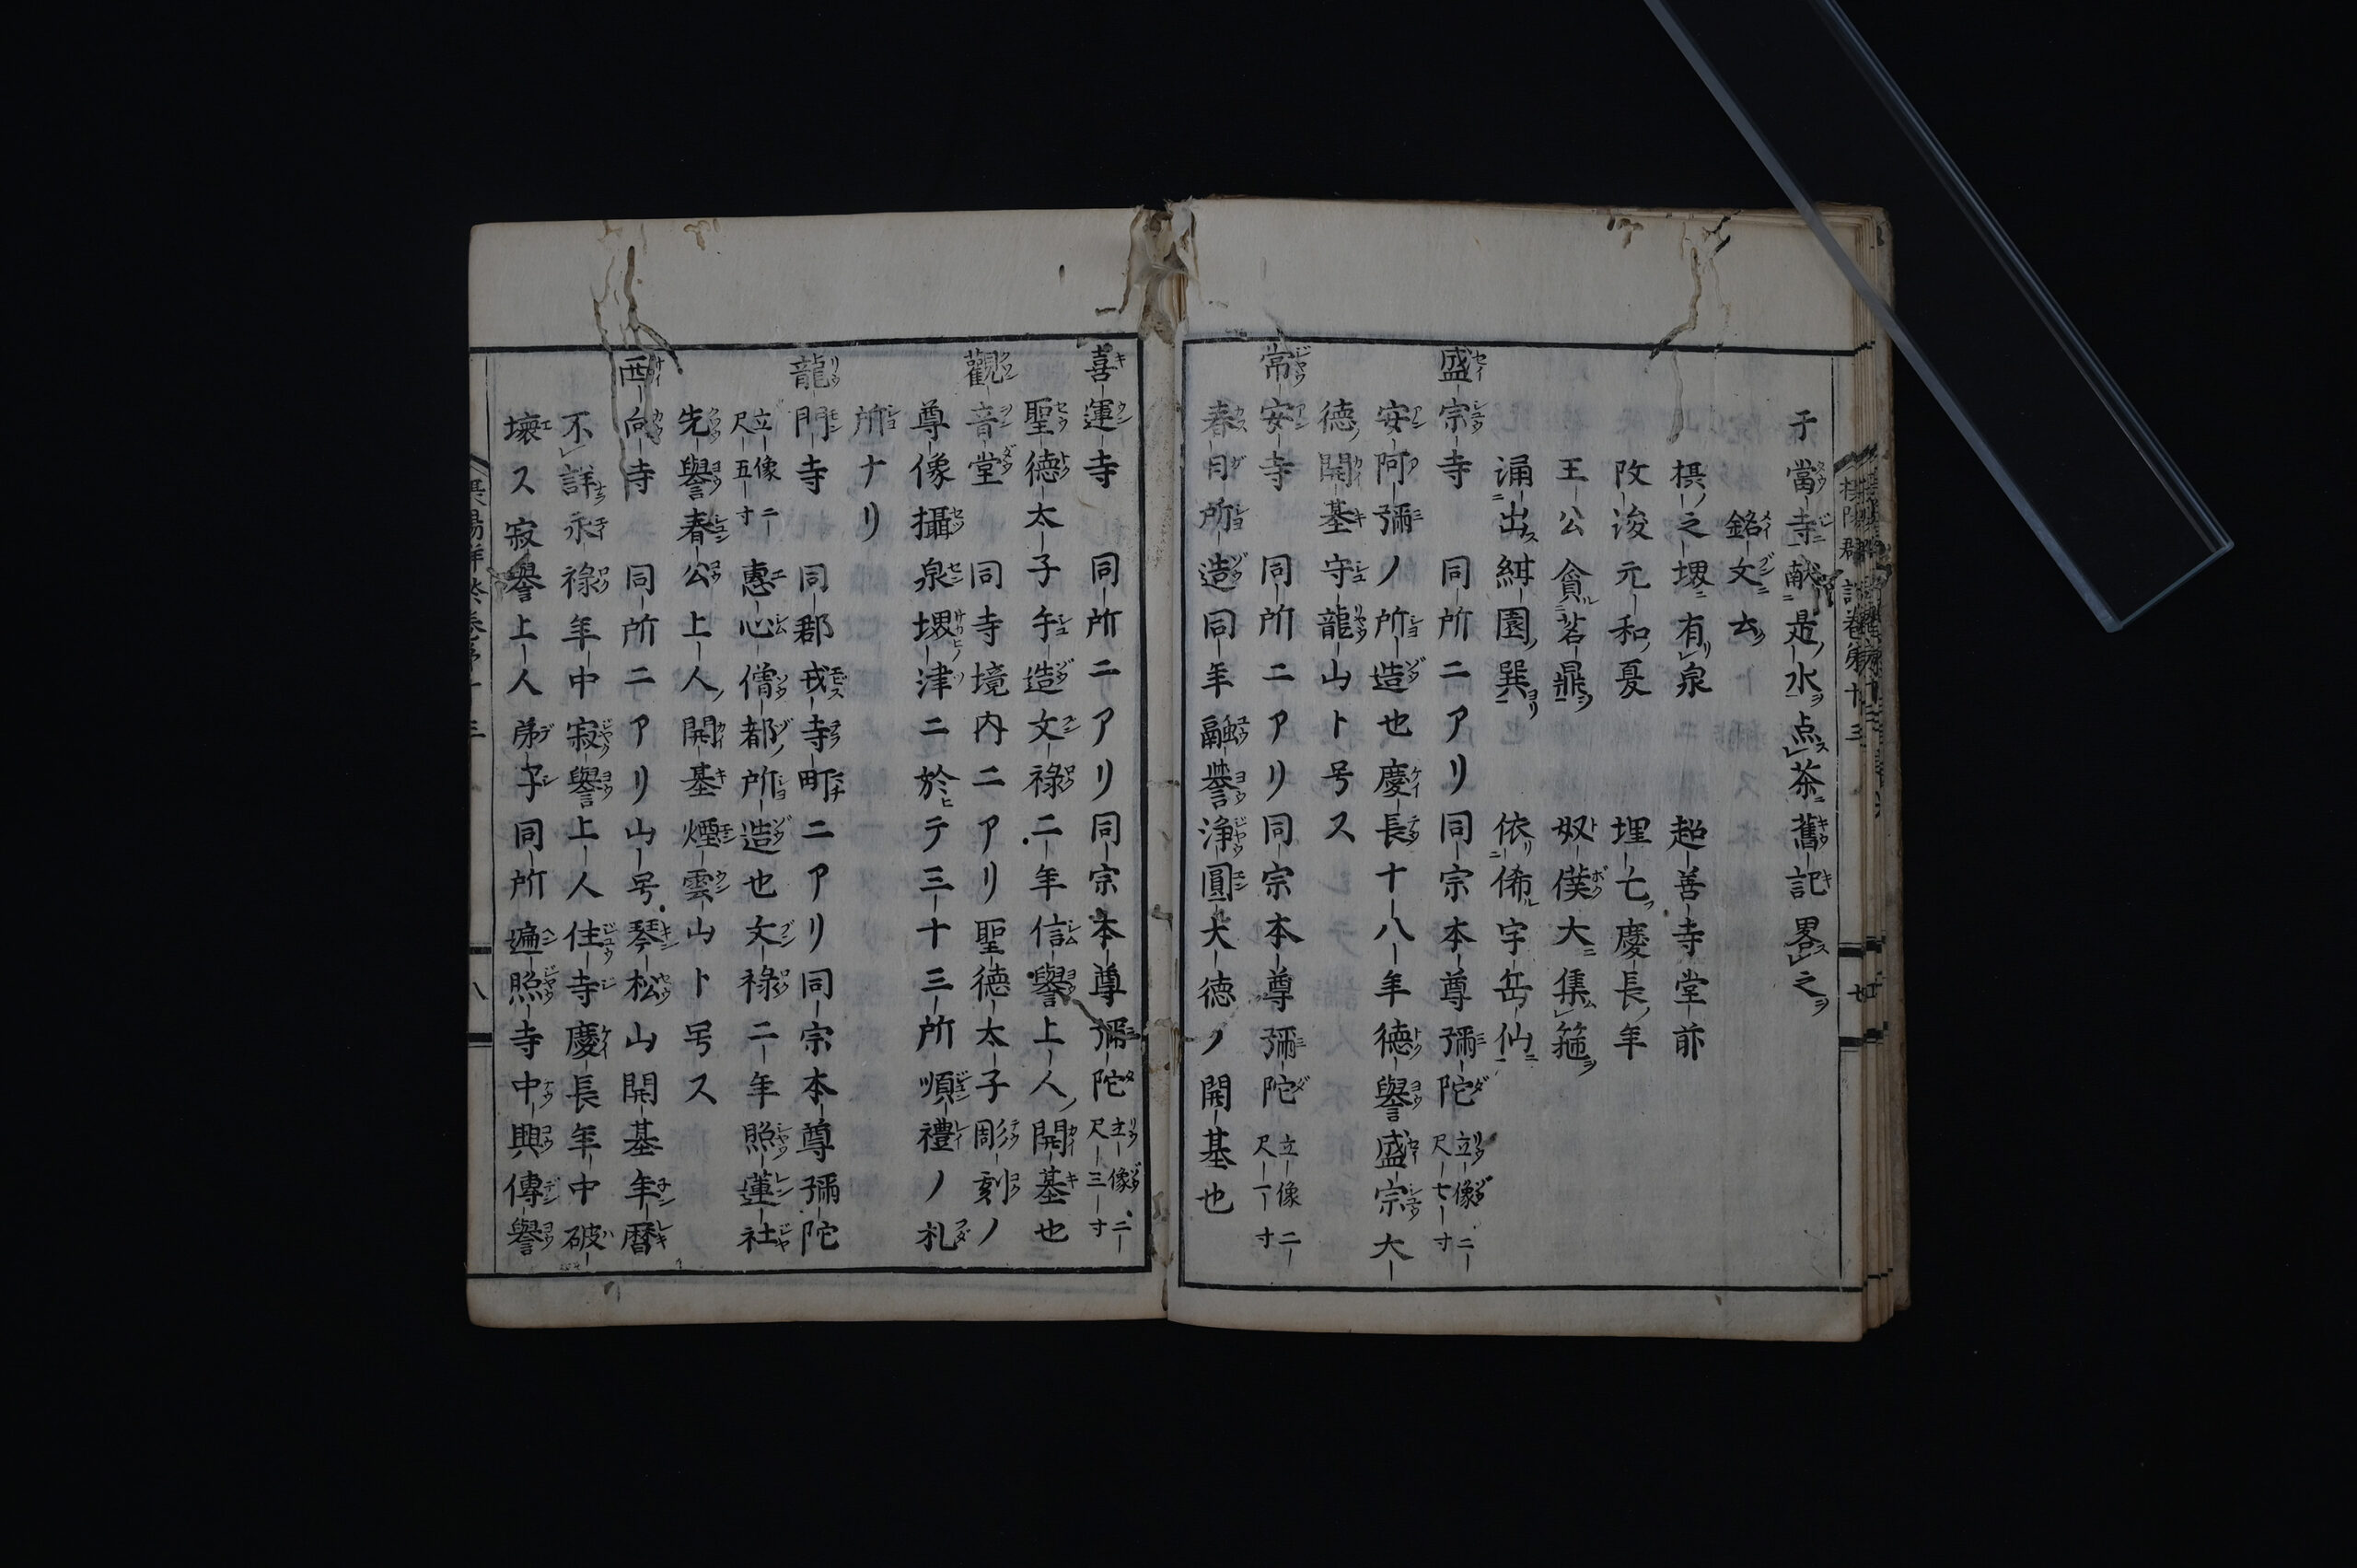 于當寺献是水点茶舊記畧之
銘文ニ云ク
摂之堺有泉　超善寺堂前
改浚元和夏　埋亡慶長年
王公貪茗鼎　奴僕大集箍
涌出絒園巽　依俙宇岳仙
盛宗寺　同所ニアリ同宗本尊彌陀立像二尺七寸
安阿彌ノ所造也慶長十八年徳譽盛宗大
徳開基守龍山ト号ス
常安寺　同所ニアリ同宗本尊彌陀立像二尺一寸
春日所造同年融誉浄圓大徳ノ開基也
喜運寺　同所ニアリ同宗本尊彌陀立像二尺三寸
聖徳太子御造文禄二年信譽上人開基也
觀音堂　同寺境内ニアリ聖徳太子彫刻ノ
尊像攝泉堺津ニ於テ三十三所順禮ノ札
所ナリ
龍門寺　同郡戎寺町ニアリ同宗本尊彌陀
立像二尺五寸　惠心僧都所造也文禄二年照蓮社
先譽春公上人開基煙雲山ト号ス
西向寺　同所ニアリ山号琴松山開基年暦
不詳永禄年中寂譽上人住寺慶長年中破
壊ス寂譽上人弟子同所遍照寺中興傳譽